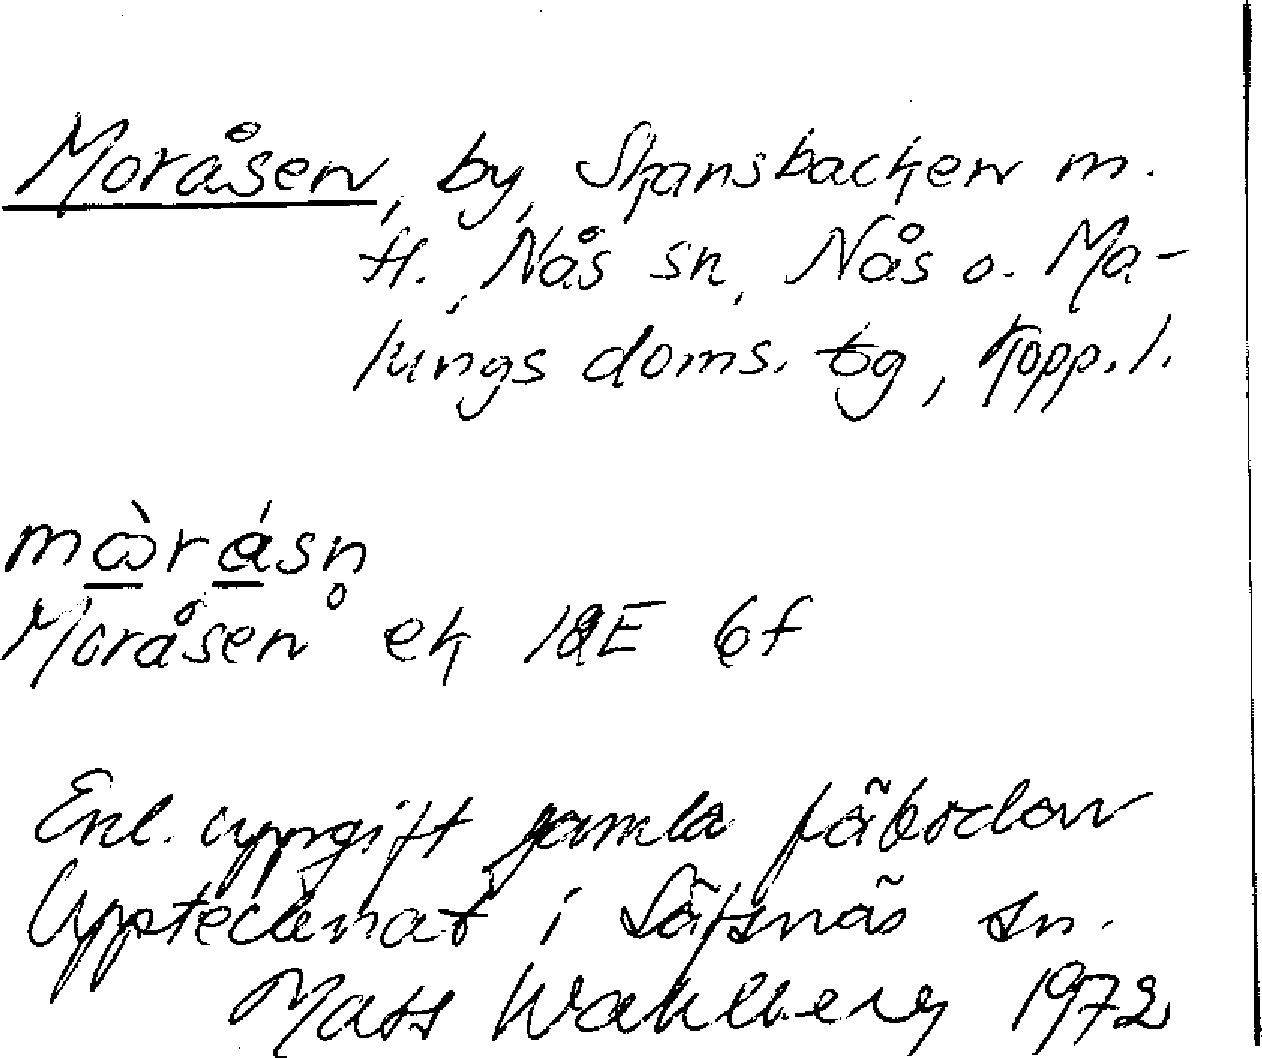 Moråsen, by, Skansbacken m.
fl., Nås sn, Nås o. Ma-
lungs doms. tg, Kopp. l.
mὼrásn̥
Moråsen ek 12E 6f
Enl. uppgift gamla fäbodar
Upptecknat i Säfsnäs sn.
Mats Wahlberg 1972